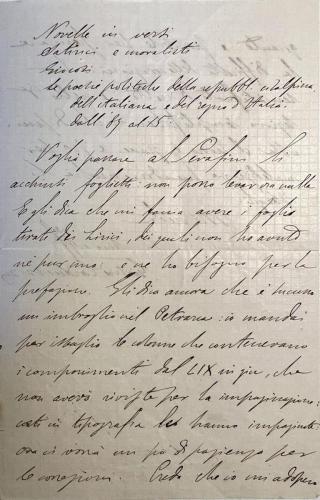 Novelle in versi
Satirici e moralisti
Giocosi
le poesie politiche della repubbl. cisalpina
dell'italiana e del regno d'Italia:
dall' 89 al 15.
Voglia passare al Serafini gli
acchiusi foglietti: non posso levar ora nulla
E gli dica che mi faccia avere i foglio
tirate dei Lirici, dei quali non ho avuto
ne pur uno: e ne ho bisogno per la
prefazione. Gli dica ancora che è successo
un imbroglio nel Petrarca: io mandai
per isbaglio le colonne che contenevano
i componimenti dal LIX in giù, che
non avevo riviste per la impaginazione:
così in tipografia le hanno impaginate
ora ci vorrà un pò di pazienza per
le correzioni. Credo che io mi adopero